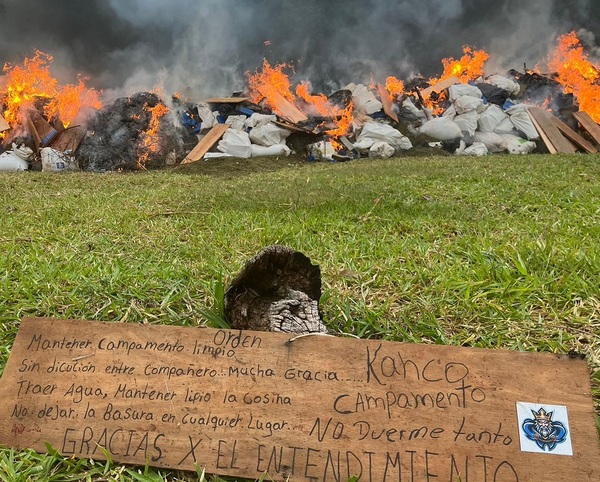 Orden
Mantener campamento limpio
Sin dicución entre Compañero... Mucha Gracia.....
Traer Agua, Mantener lipio la Cosina
No dejar la Basura en Cualquiet Lugar...
Kanco
Campamento
No Duerme tanto
GRACIAS X EL ENTENDIMIENTO